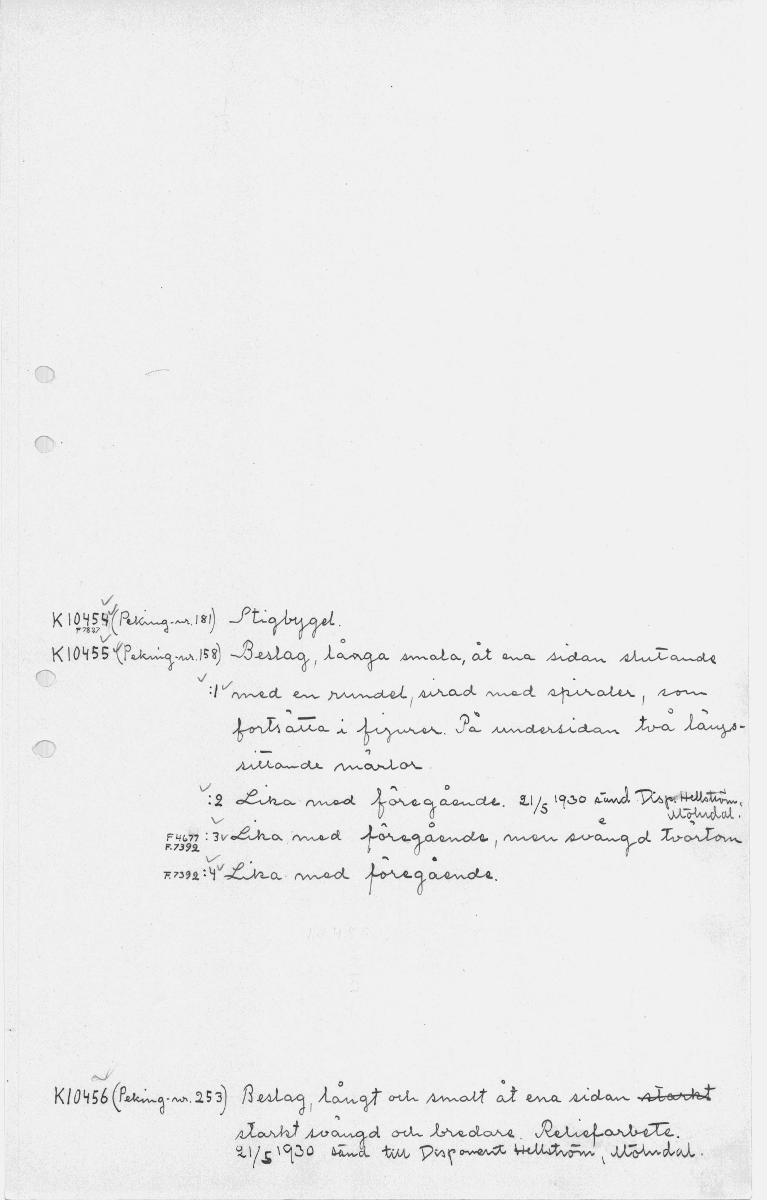 K10454 (Peking-nr. 181) Stigbygel.
F7827
K10455 (Peking-nr. 158) Beslag, långa smala, åt ena sidan slutande
:1 med en rundel, sirad med spiraler, som
fortsätta i figurer. På undersidan två längs-
sittande märlor.
:2 Lika med föregående. 21/5 1930 sänd Disp. Hellström,
Mölndal.
F4677 :3 Lika med föregående, men svängd tvärtom
F.7392
F.7392 :4 Lika med föregående.
K10456 (Peking-nr. 253) Beslag, långt och smalt åt ena sidan starkt
starkt svängd och bredare. Reliefarbete.
21/5 1930 sänd till Disponent Hellström, Mölndal.